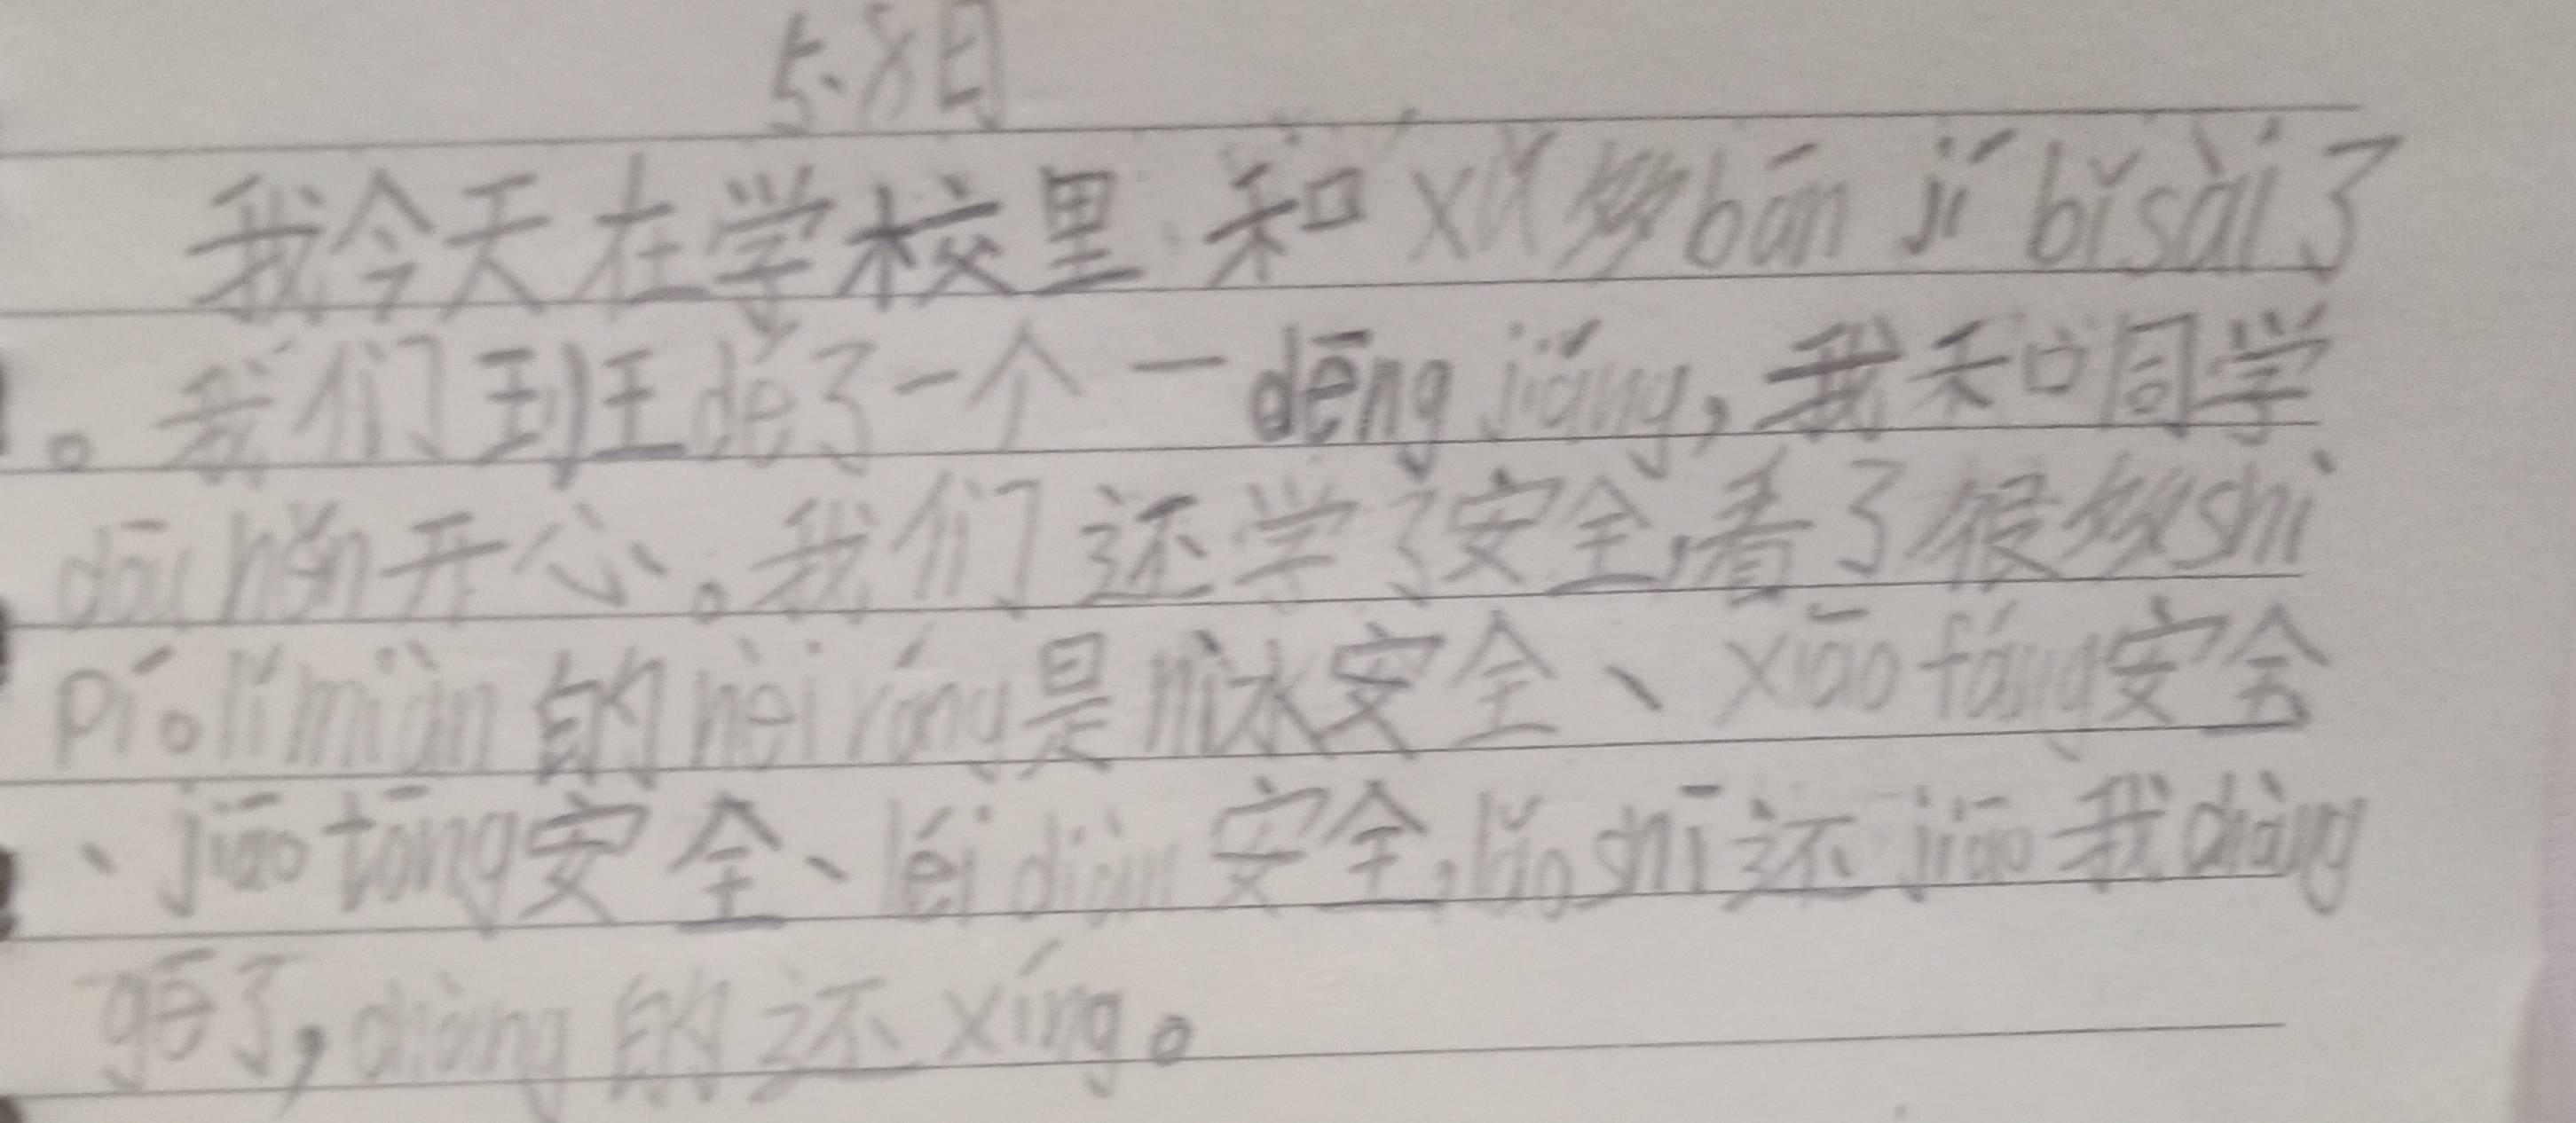 5.8日
我今天在学校里和xǔ多bān jí bǐsài了
。我们班dé了一个一dēng jiǎng，我和同学
dōu hěn开心。我们还学了安全，看了很多shì
pí。lǐ miàn的nèi róng是nì水安全、xiāo fáng安全
、jiāo tōng安全、léi diàn安全，lǎo shī还jiāo我diàng
gē了，diàng的还xíng。